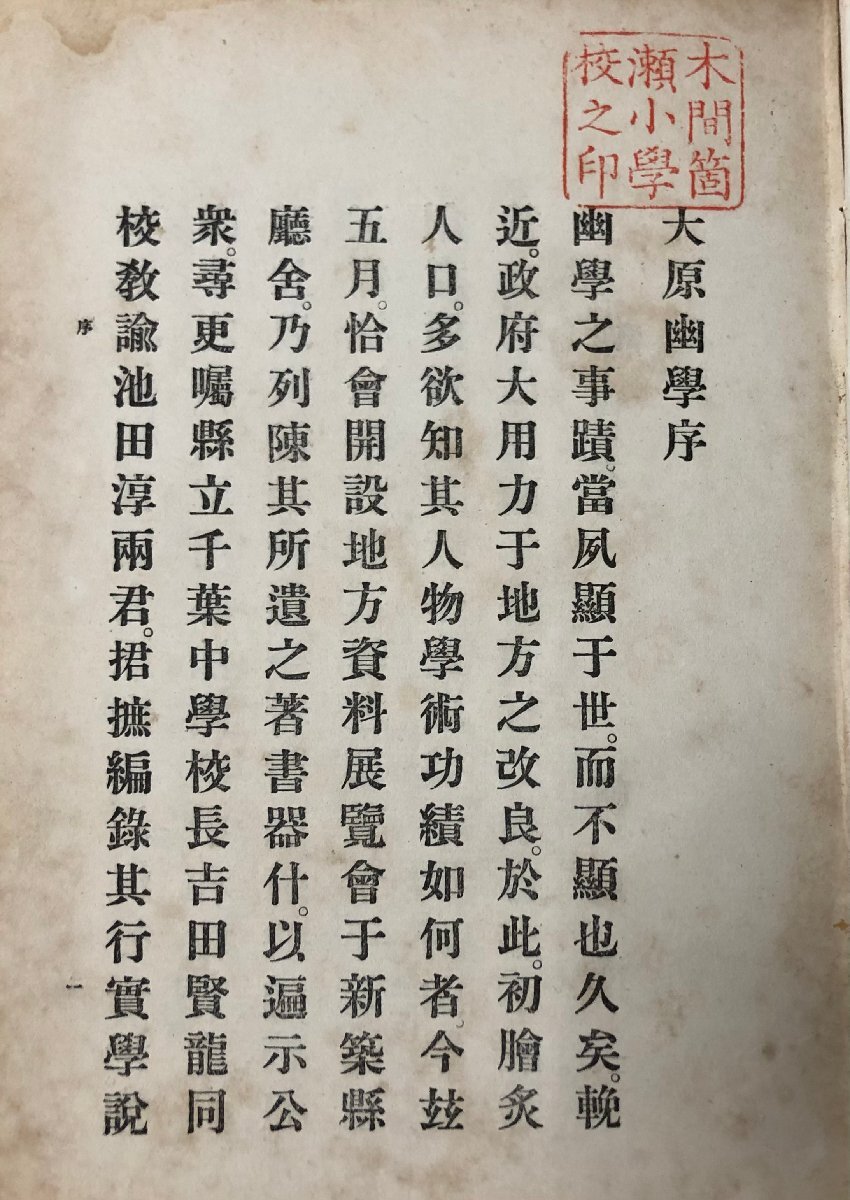 木間箇
瀬小學
校之印
大原幽學序
幽學之事蹟。當夙顯于世。而不顯也久矣。輓
近。政府大用力于地方之改良。於此。初膾炙
人口。多欲知其人物學術功績如何者。今玆
五月。恰會開設地方資料展覽會于新築縣
廳舍。乃列陳其所遺之著書器什。以遍示公
衆。尋更囑縣立千葉中學校長吉田賢龍同
校敎諭池田淳兩君。捃摭編錄其行實學說
序
一